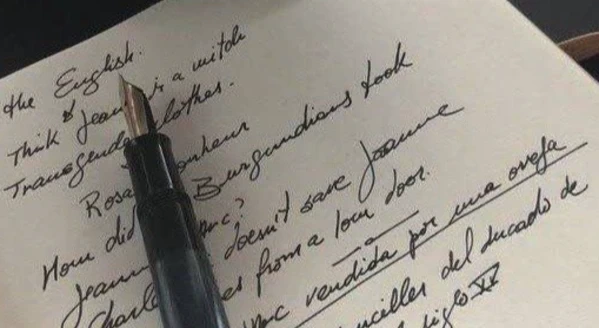 the English.
Think Jean is a witch
Transgender clothes.
Rosa Bonheur
How did Burgundians took
Jeanne doesn't save Joanne
Charles from a low door.
vendida por una oveja
del ducado de
siglo XV